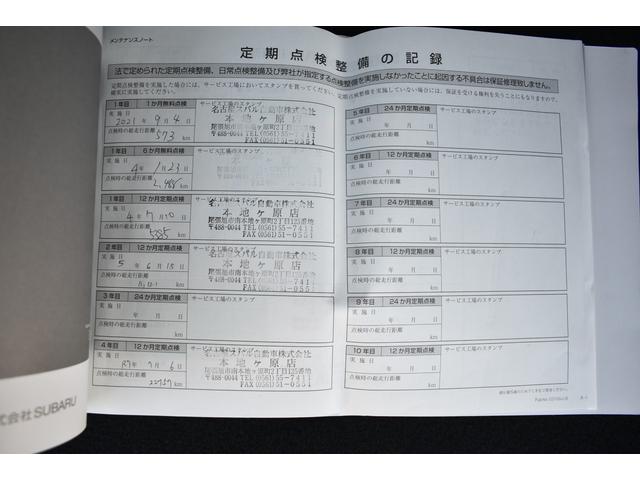 メンテナンスノート
定期点検整備の記録
法で定められた定期点検整備、日常点検整備及び弊社が指定する点検整備を実施しなかったことに起因する不具合は保証修理致しません。
1年目 1か月無料点検
サービス工場のスタンプ
実施日
2021年9月4日
点検時の総走行距離
573 km
名古屋スバル自動車株式会社
本地ヶ原店
尾張旭市南本地ヶ原町2丁目125番地
〒488-0044 TEL(0561)55-7411
FAX(0561)51-0551
1年目 6か月無料点検
サービス工場のスタンプ
実施日
4年1月23日
点検時の総走行距離
km
1年目 12か月定期点検
サービス工場のスタンプ
実施日
4年7月10日
点検時の総走行距離
5385 km
名古屋スバル自動車株式会社
本地ヶ原店
尾張旭市南本地ヶ原町2丁目125番地
〒488-0044 TEL(0561)55-7411
FAX(0561)51-0551
2年目 12か月定期点検
サービス工場のスタンプ
実施日
5年6月15日
点検時の総走行距離
km
名古屋スバル自動車株式会社
本地ヶ原店
尾張旭市南本地ヶ原町2丁目125番地
3年目 24か月定期点検
サービス工場のスタンプ
実施日
年 月 日
点検時の総走行距離
km
4年目 12か月定期点検
サービス工場のスタンプ
実施日
R7年7月6日
点検時の総走行距離
22757 km
名古屋スバル自動車株式会社
本地ヶ原店
尾張旭市南本地ヶ原町2丁目125番地
〒488-0044 TEL(0561)55-7411
FAX(0561)51-0551
5年目 24か月定期点検
サービス工場のスタンプ
実施日
年 月 日
点検時の総走行距離
km
6年目 12か月定期点検
サービス工場のスタンプ
実施日
年 月 日
点検時の総走行距離
km
7年目 24か月定期点検
サービス工場のスタンプ
実施日
年 月 日
点検時の総走行距離
km
8年目 12か月定期点検
サービス工場のスタンプ
実施日
年 月 日
点検時の総走行距離
km
9年目 24か月定期点検
サービス工場のスタンプ
実施日
年 月 日
点検時の総走行距離
km
10年目 12か月定期点検
サービス工場のスタンプ
実施日
年 月 日
点検時の総走行距離
km
式会社 SUBARU